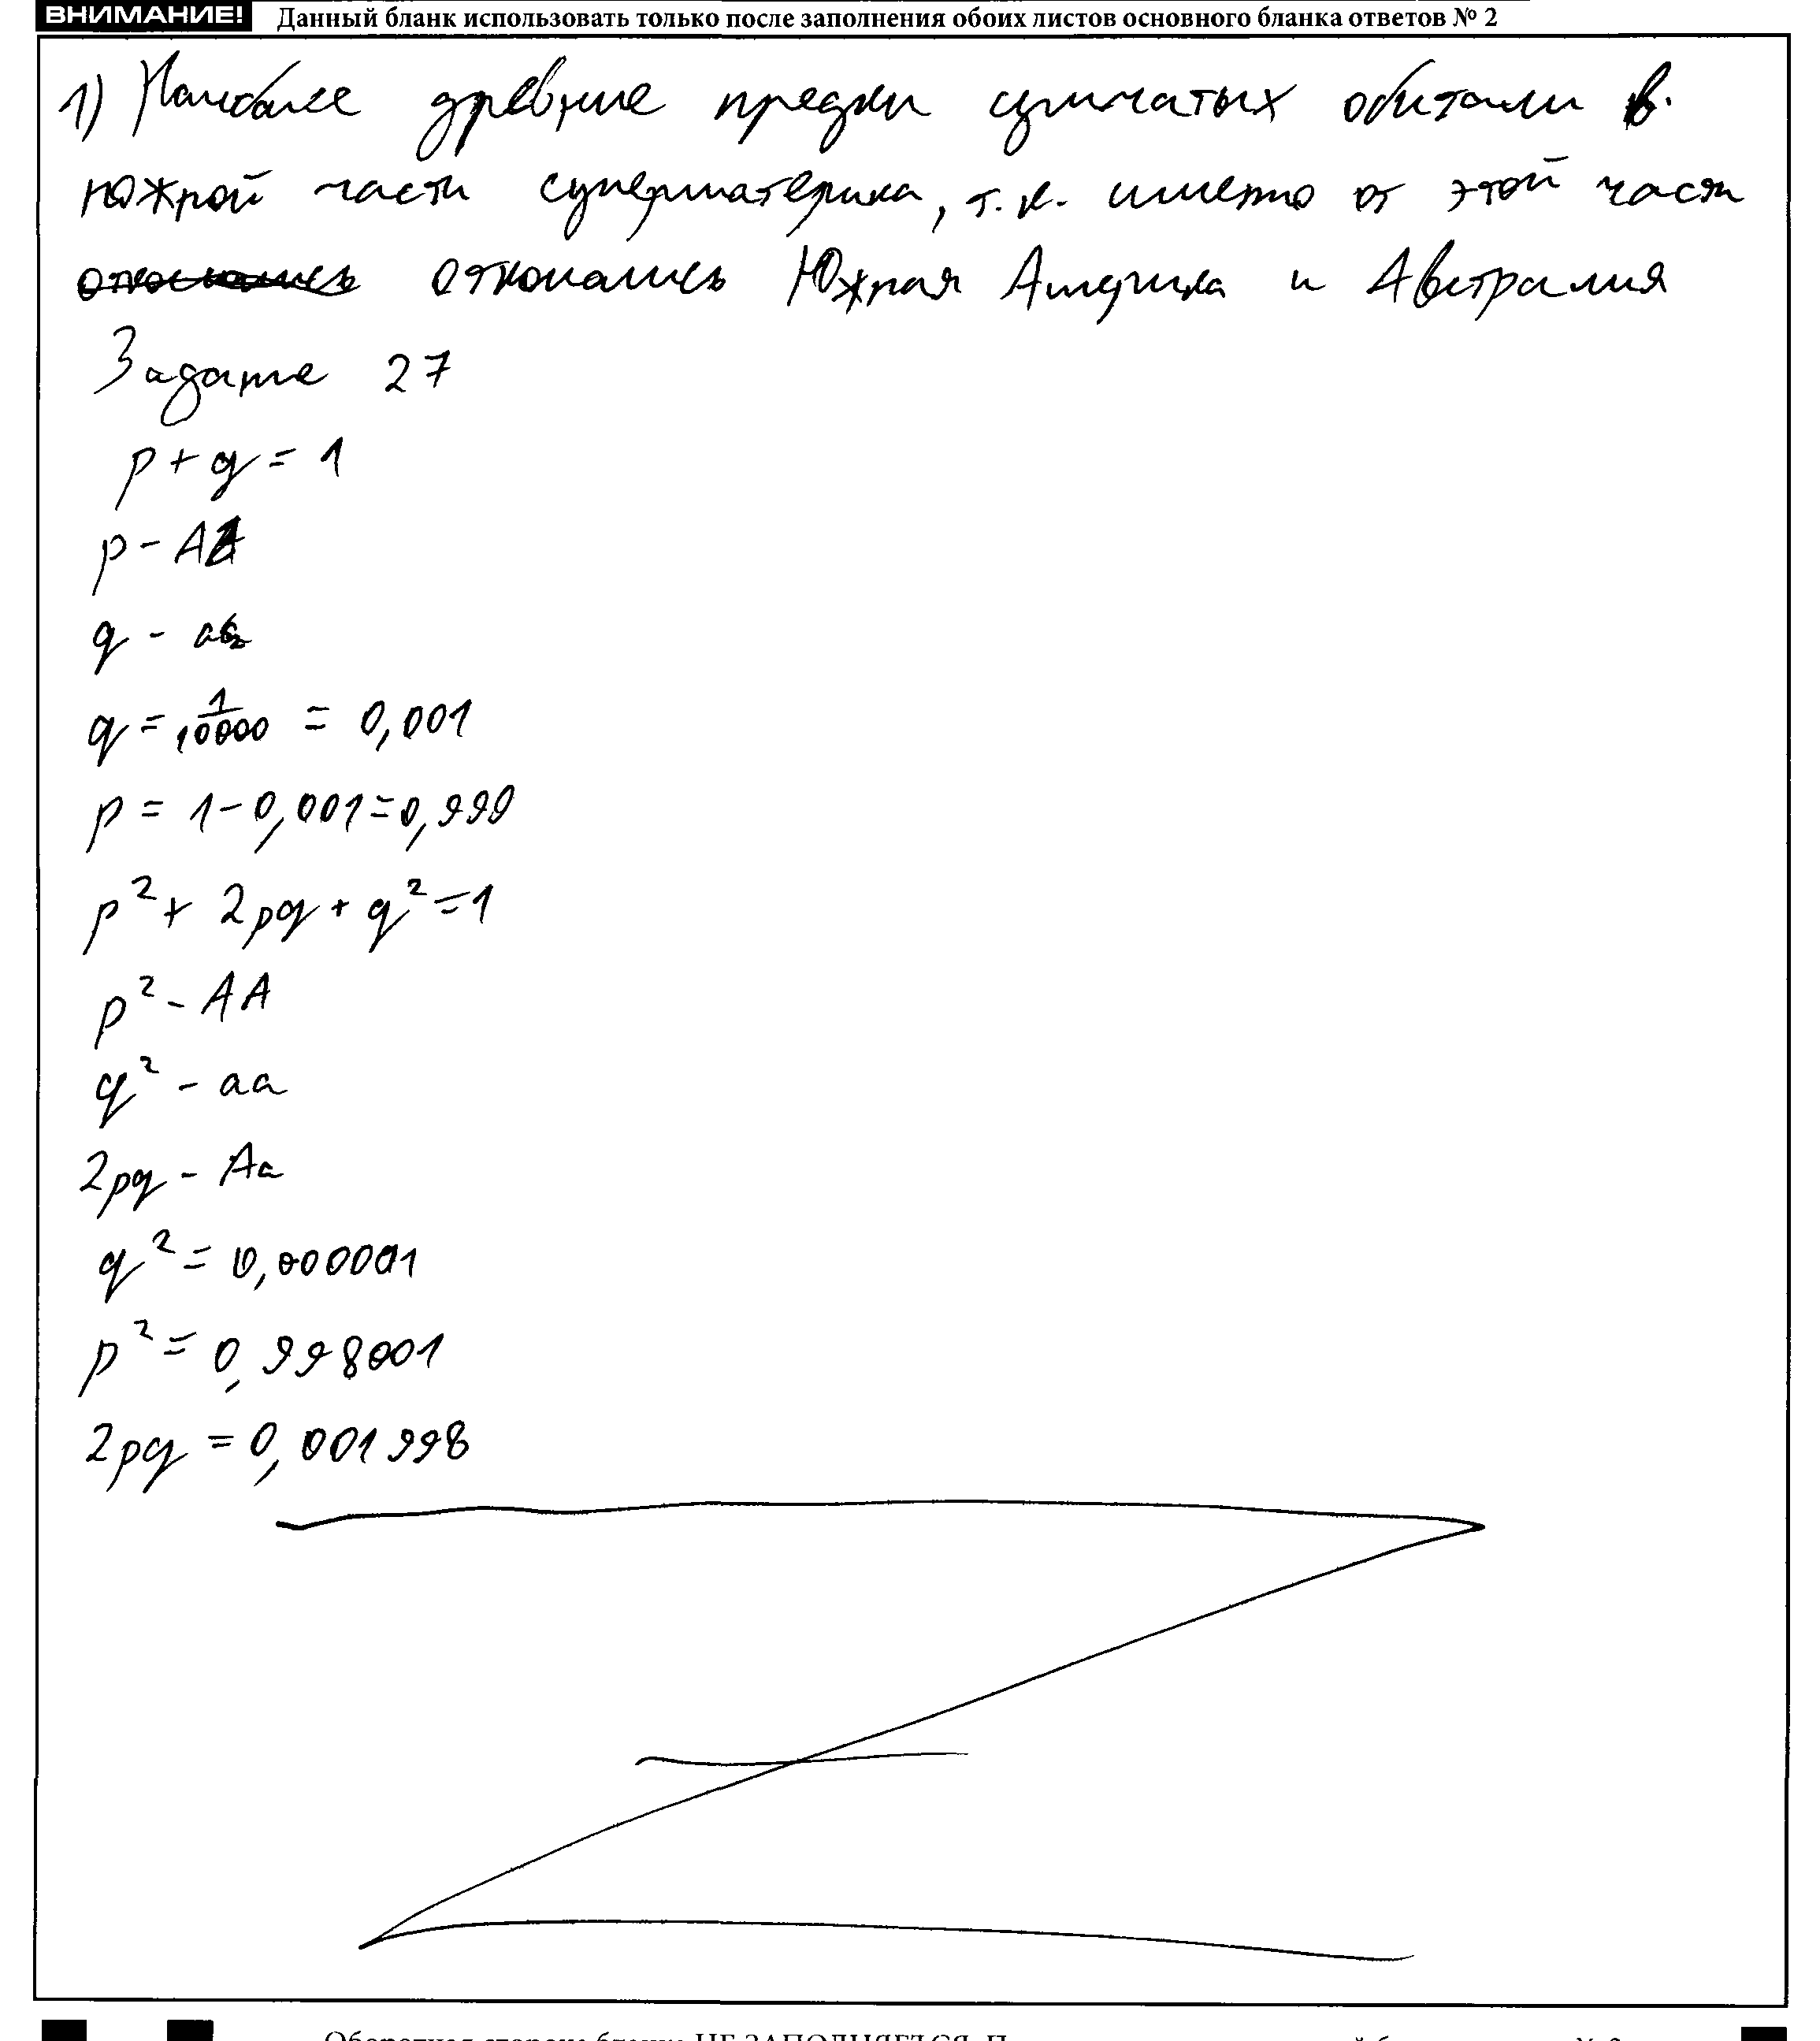 ВНИМАНИЕ! Данный бланк использовать только после заполнения обоих листов основного бланка ответов № 2
1) Наиболее древние предки сумчатых обитали в
южной части суперматерика, т.к. именно от этой части
откололись Южная Америка и Австралия
Задание 27
p + q = 1
p - A
q - a
q = 1/10000 = 0,001
p = 1 - 0,001 = 0,999
p² + 2pq + q² = 1
p² - AA
q² - aa
2pq - Aa
q² = 0,000001
p² = 0,998001
2pq = 0,001998